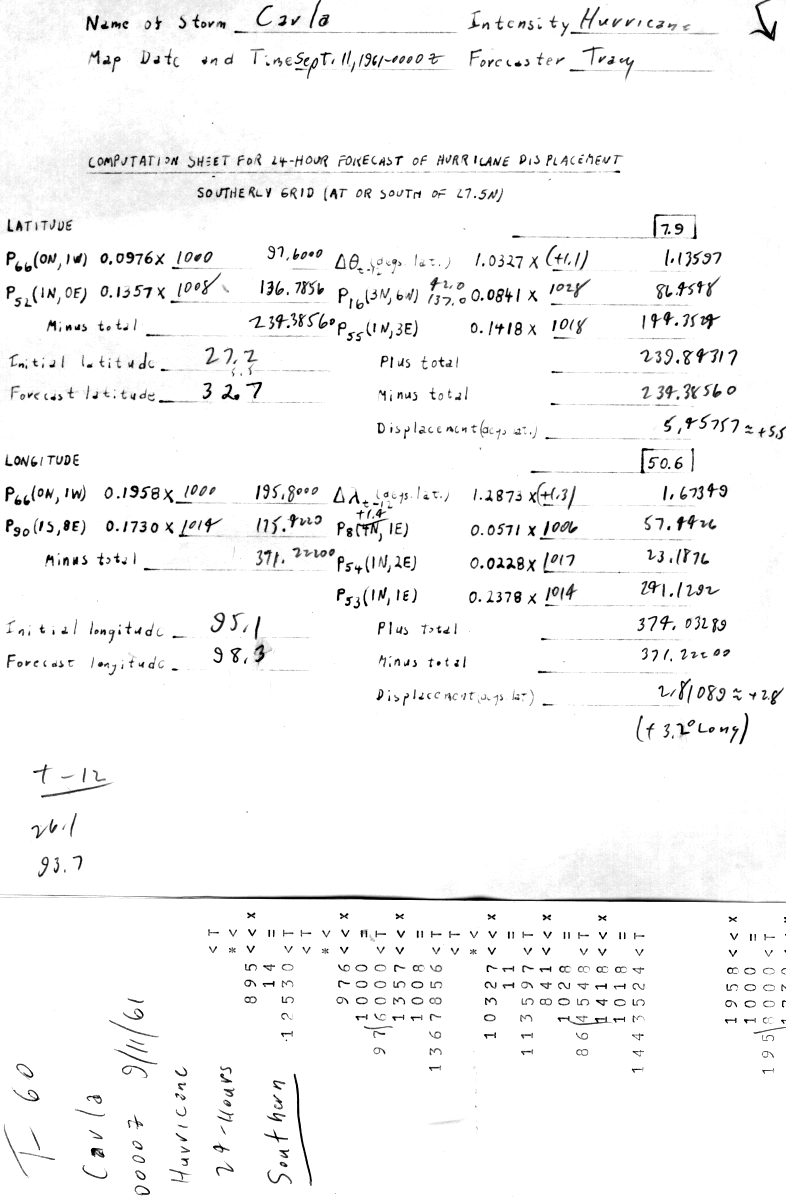 Name of Storm Carla Intensity Hurricane
Map Date and Time Sept. 11, 1961-0000 Z Forecaster Tracy
COMPUTATION SHEET FOR 24-HOUR FORECAST OF HURRICANE DISPLACEMENT
SOUTHERLY GRID (AT OR SOUTH OF 27.5N)
LATITUDE 7.9
P66(0N, 1W) 0.0976 X 1000 97.6000 Δθt-12 (degs. lat.) 1.0327 X (+1.1) 1.13597
P52(1N, 0E) 0.1357 X 1008 136.7856 P16(3N, 6W) 42.0 137.0 0.0841 X 1028 86.4548
Minus total 234.38560 P55(1N, 3E) 0.1418 X 1018 144.3524
Initial latitude 27.2 Plus total 239.84317
5.5
Forecast latitude 32.7 Minus total 234.38560
Displacement (degs lat.) 5.45757 ≈ +5.5
LONGITUDE 50.6
P66(0N, 1W) 0.1958 X 1000 195.8000 Δλt-12 (degs. lat.) 1.2873 X (+1.3) 1.67349
+1.4
P90(1S, 8E) 0.1730 X 1014 175.4220 P8(4N, 1E) 0.0571 X 1006 57.4426
Minus total 371.22200 P54(1N, 2E) 0.0228 X 1017 23.1876
P53(1N, 1E) 0.2378 X 1014 241.1292
Initial longitude 95.1 Plus total 374.03289
Forecast longitude 98.3 Minus total 371.22200
Displacement (degs lat) 2.81089 ≈ +2.8
(+3.2° Long)
t-12
26.1
93.7
T-60
Carla
0000Z 9/11/61
Hurricane
24-Hours
Southern
< T
* <
895 < < X
14 =
12530 < T
< T
* <
976 < < X
1000 =
976000 < T
1357 < < X
1008 =
1367856 < T
< T
* <
10327 < < X
11 =
113597 < T
841 < < X
1028 =
864548 < T
1418 < < X
1018 =
1443524 < T
1958 < < X
1000 =
1958000 < T